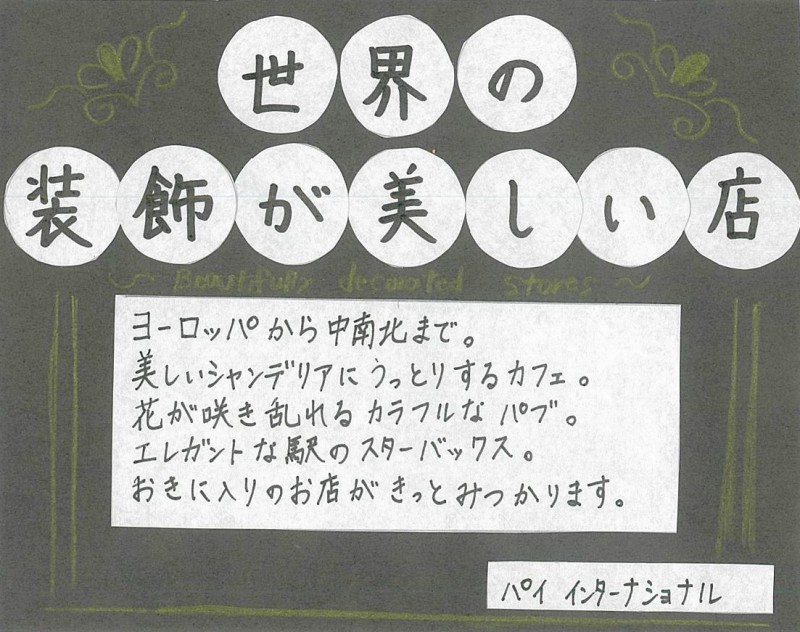 世界の
装飾が美しい店
~ Beautifully decorated stores ~
ヨーロッパから中南北まで。
美しいシャンデリアにうっとりするカフェ。
花が咲き乱れるカラフルなパブ。
エレガントな駅のスターバックス。
おきに入りのお店がきっとみつかります。
パイ インターナショナル